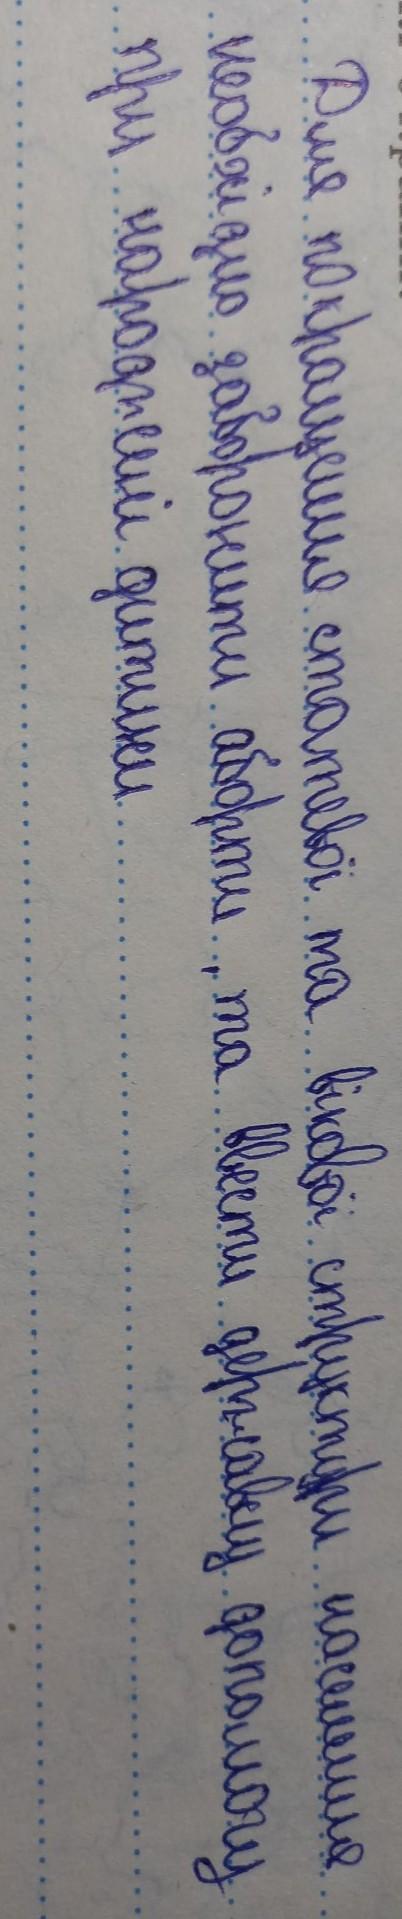 Для покращення статевої та вікової структури населення
необхідно заборонити аборти, та ввести державну допомогу
при народженні дитини